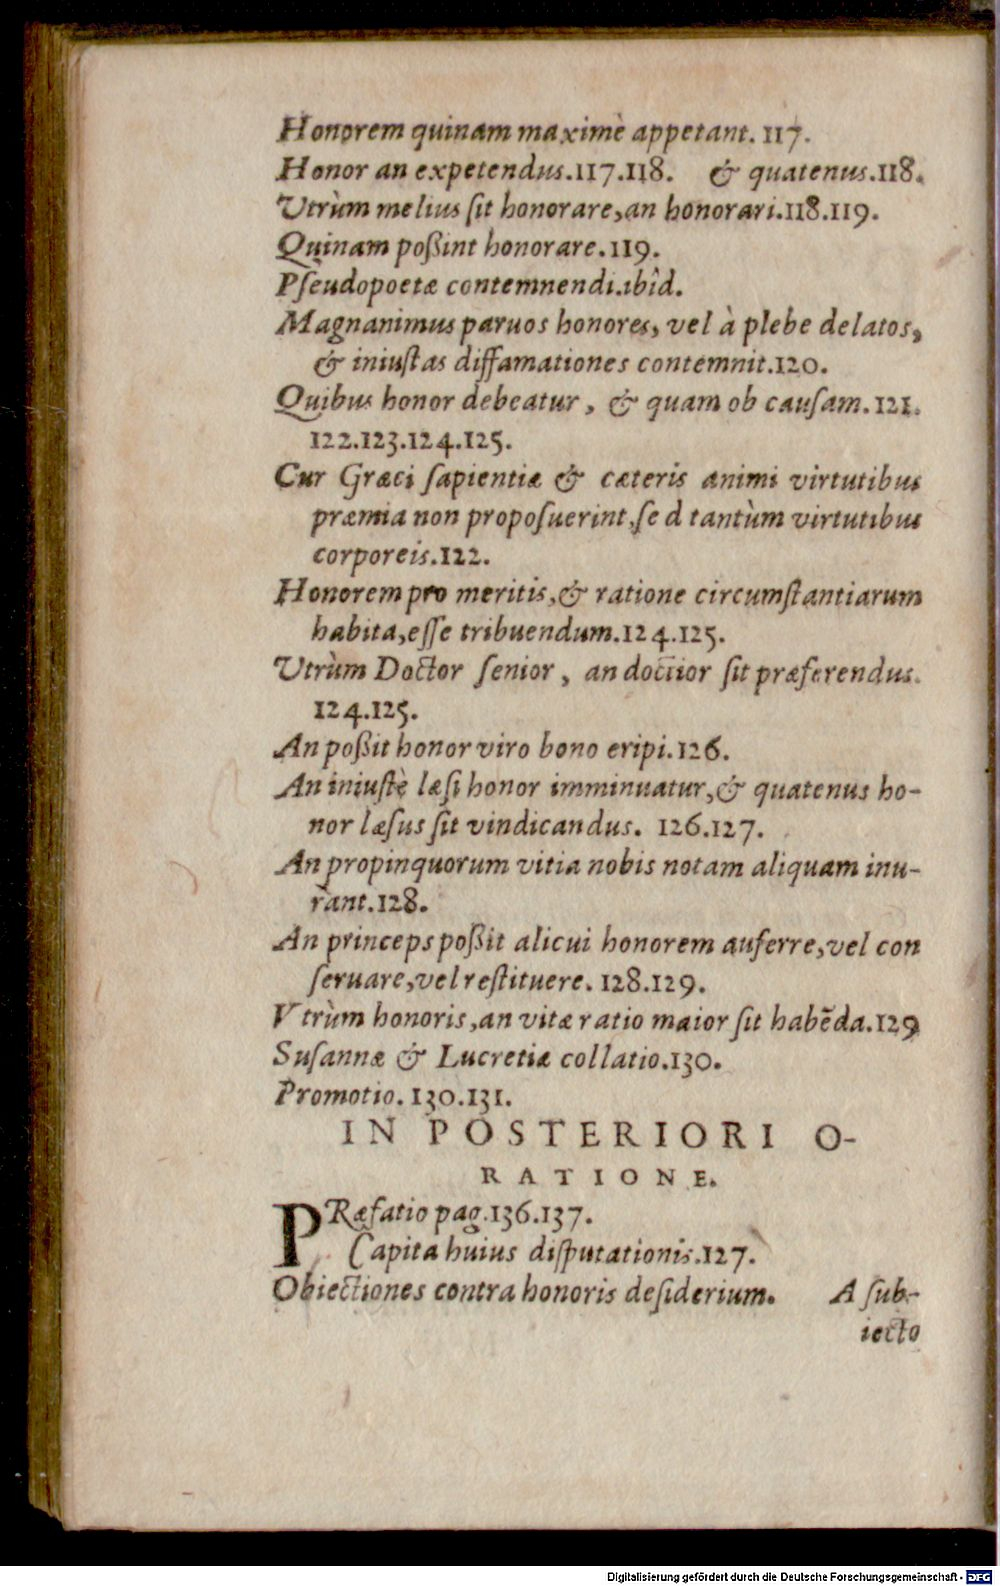 Honorem quinam maximè appetant. 117.
Honor an expetendus.117.118. & quatenus.118.
Vtrùm melius ſit honorare,an honorari.118.119.
Quinam poßint honorare.119.
Pſeudopoetæ contemnendi.ibid.
Magnanimus paruos honores, vel à plebe delatos,
& iniuſtas diffamationes contemnit.120.
Quibus honor debeatur, & quam ob cauſam. 121.
122.123.124.125.
Cur Græci ſapientiæ & cæteris animi virtutibus
præmia non propoſuerint,ſe d tantùm virtutibus
corporeis.122.
Honorem pro meritis,& ratione circumſtantiarum
habita,eſſe tribuendum.124.125.
Vtrùm Doctor ſenior, an doctior ſit præferendus.
124.125.
An poßit honor viro bono eripi.126.
An iniuſtè læſi honor imminuatur,& quatenus ho-
nor læſus ſit vindicandus. 126.127.
An propinquorum vitia nobis notam aliquam inu-
rant.128.
An princeps poßit alicui honorem auferre,vel con
ſeruare,vel reſtituere. 128.129.
Vtrùm honoris,an vitæ ratio maior ſit habẽda.129
Suſannæ & Lucretiæ collatio.130.
Promotio. 130.131.
IN POSTERIORI O-
RATIONE.
PRæfatio pag.136.137.
Capita huius diſputationis.127.
Obiectiones contra honoris deſiderium. A ſub-
iecto
Digitalisierung gefördert durch die Deutsche Forschungsgemeinschaft - DFG